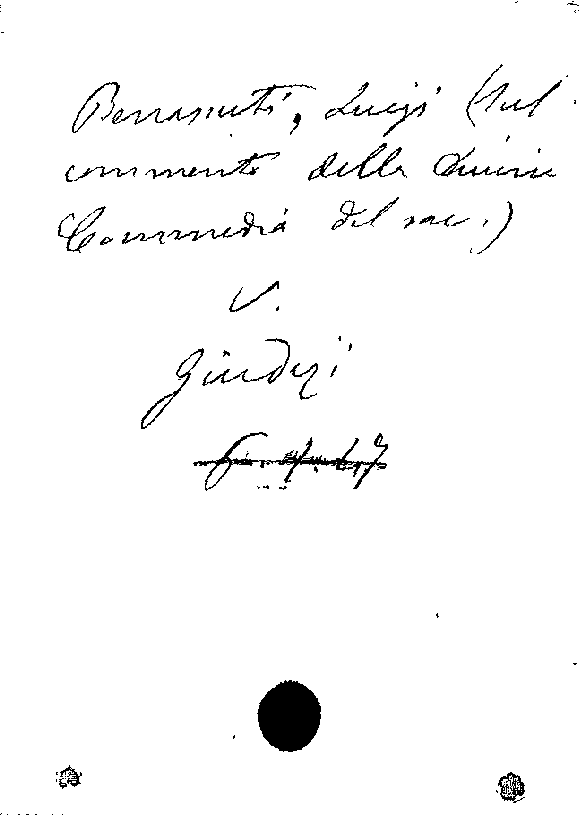 Bennassuti, Luigi (sul
commento della Divina
Commedia del sac.)
V.
Giudizi